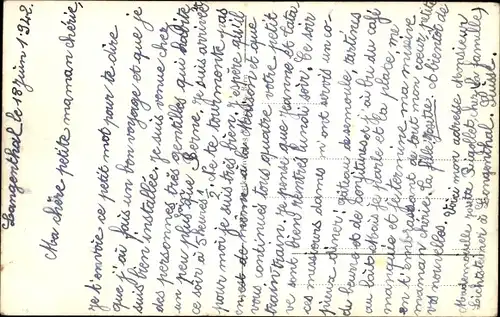 Langenthal le 18 juin 1948.
Ma chère petite maman chérie,
Je t'envoie ce petit mot pour te dire
que j'ai fais un bon voyage et que je
suis bien installée. Je suis venue chez
des personnes très gentilles qui habite
un peu plus que Berne. Je suis arrivée
ce soir à 5 heures ½. Se te tourmente pas
pour moi je suis très bien. J'espère qu'il
en est de même à la maison et que
vous continuez tous quatre votre petit
train train. Je pense que Jeanne et tata
ve sont bien rentrées lundi soir. Ce soir
ces messieurs dames m'ont servi un co-
pieux dîner: gâteau de semoule, tartines
du beurre et de confitures et j'ai bu du café
au lait. Mais je parle et la place me
manque et je termine ma missive
en t'embrassant de tout mon cœur, petite
maman chérie, ta fillette. A bientôt de
vos nouvelles. Voici mon adresse depuis
Mademoiselle petite Rigollet sur la famille)
Leichtsteiner à Langenthal. Suisse.